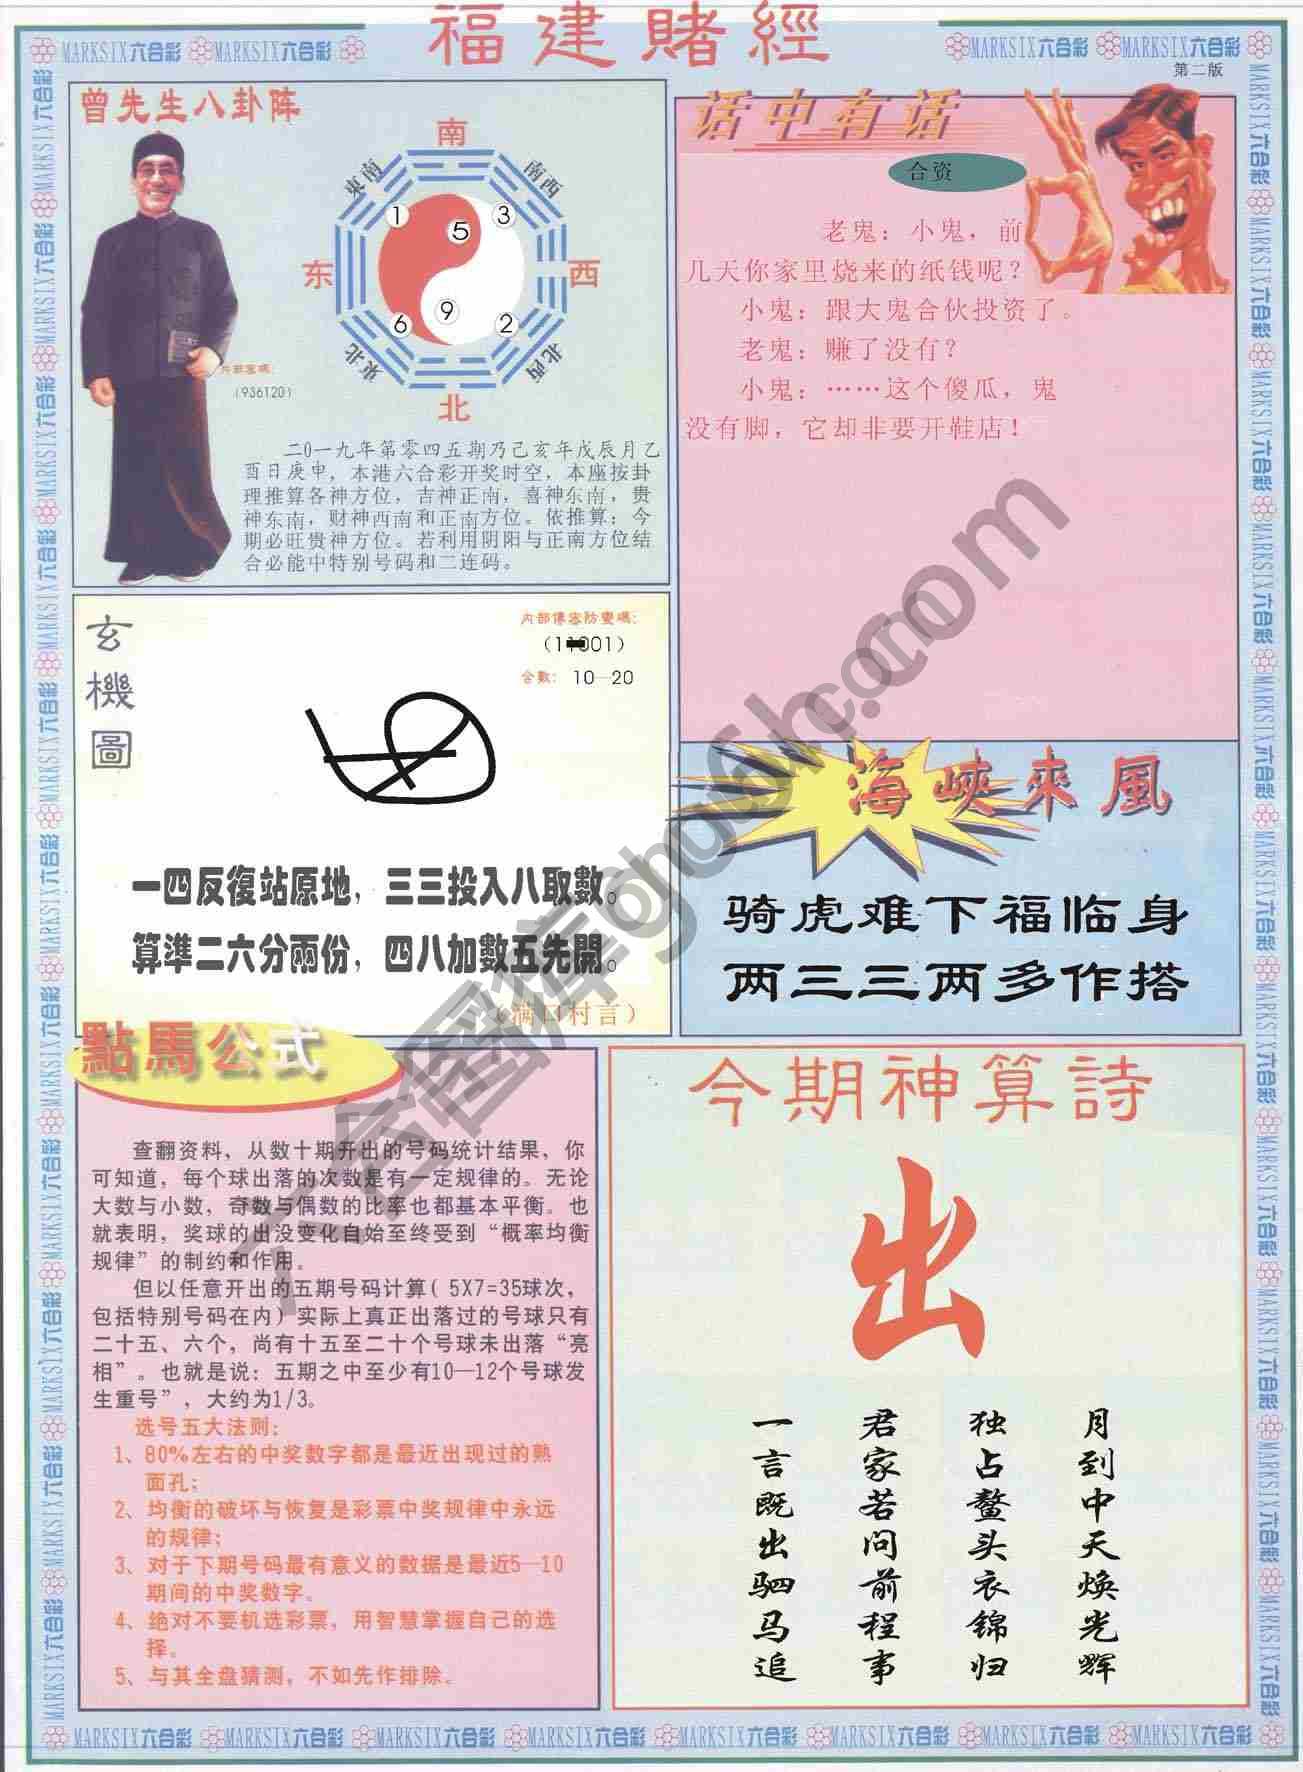 福建賭經
MARKSIX六合彩 MARKSIX六合彩
MARKSIX六合彩 MARKSIX六合彩
第二版
曾先生八卦阵
南
東南
南西
1
5
3
东
西
6
9
2
東北
北西
北
内部密碼:
(936120)
二0一九年第零四五期乃己亥年戊辰月乙
酉日庚申，本港六合彩开奖时空，本座按卦
理推算各神方位，吉神正南，喜神东南，贵
神东南，财神西南和正南方位。依推算：今
期必旺贵神方位。若利用阴阳与正南方位结
合必能中特别号码和二连码。
话中有话
合资
老鬼：小鬼，前
几天你家里烧来的纸钱呢？
小鬼：跟大鬼合伙投资了。
老鬼：赚了没有？
小鬼：……这个傻瓜，鬼
没有脚，它却非要开鞋店！
玄機圖
内部傳密防變碼:
合數: 10—20
一四反復站原地，三三投入八取數。
算準二六分兩份，四八加數五先開。
（满口村言）
海峽來風
骑虎难下福临身
两三三两多作搭
點馬公式
查翻资料，从数十期开出的号码统计结果，你
可知道，每个球出落的次数是有一定规律的。无论
大数与小数，奇数与偶数的比率也都基本平衡。也
就表明，奖球的出没变化自始至终受到“概率均衡
规律”的制约和作用。
但以任意开出的五期号码计算( 5X7=35球次，
包括特别号码在内)实际上真正出落过的号球只有
二十五、六个，尚有十五至二十个号球未出落“亮
相”。也就是说：五期之中至少有10—12个号球发
生重号”，大约为1/3。
选号五大法则：
1、80%左右的中奖数字都是最近出现过的熟
面孔；
2、均衡的破坏与恢复是彩票中奖规律中永远
的规律；
3、对于下期号码最有意义的数据是最近5—10
期间的中奖数字。
4、绝对不要机选彩票，用智慧掌握自己的选
择。
5、与其全盘猜测，不如先作排除。
今期神算詩
出
月到中天焕光辉
独占鳌头衣锦归
君家若问前程事
一言既出驷马追
MARKSIX六合彩 MARKSIX六合彩 MARKSIX六合彩 MARKSIX六合彩 MARKSIX六合彩 MARKSIX六合彩 MARKSIX六合彩 MARKSIX六合彩